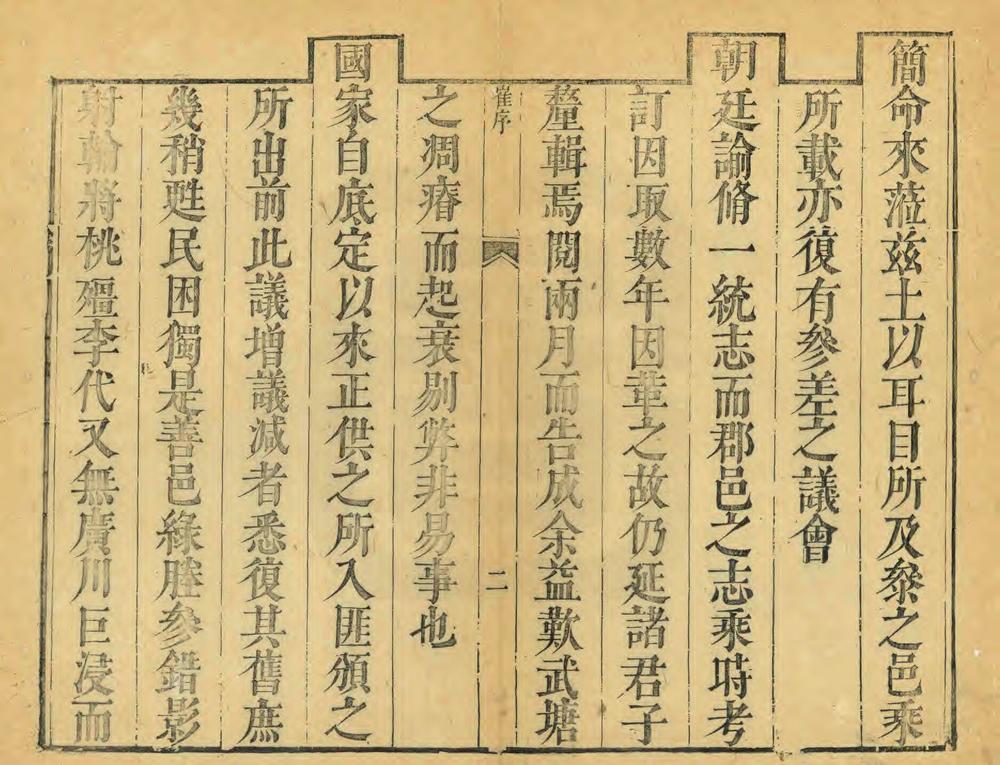 簡命來蒞茲土以耳目所及叅之邑乘
所載亦復有參差之議會
朝廷諭脩一統志而郡邑之志乘時考
訂因取數年因革之故仍延諸君子
釐輯焉閱兩月而告成余益歎武塘
崔序
二
之凋瘠而起衰剔弊非易事也
國家自底定以來正供之所入匪頒之
所出前此議增議減者悉復其舊庶
幾稍甦民困獨是善邑綠塍參錯影
射輸將桃殭李代又無廣川巨浸而